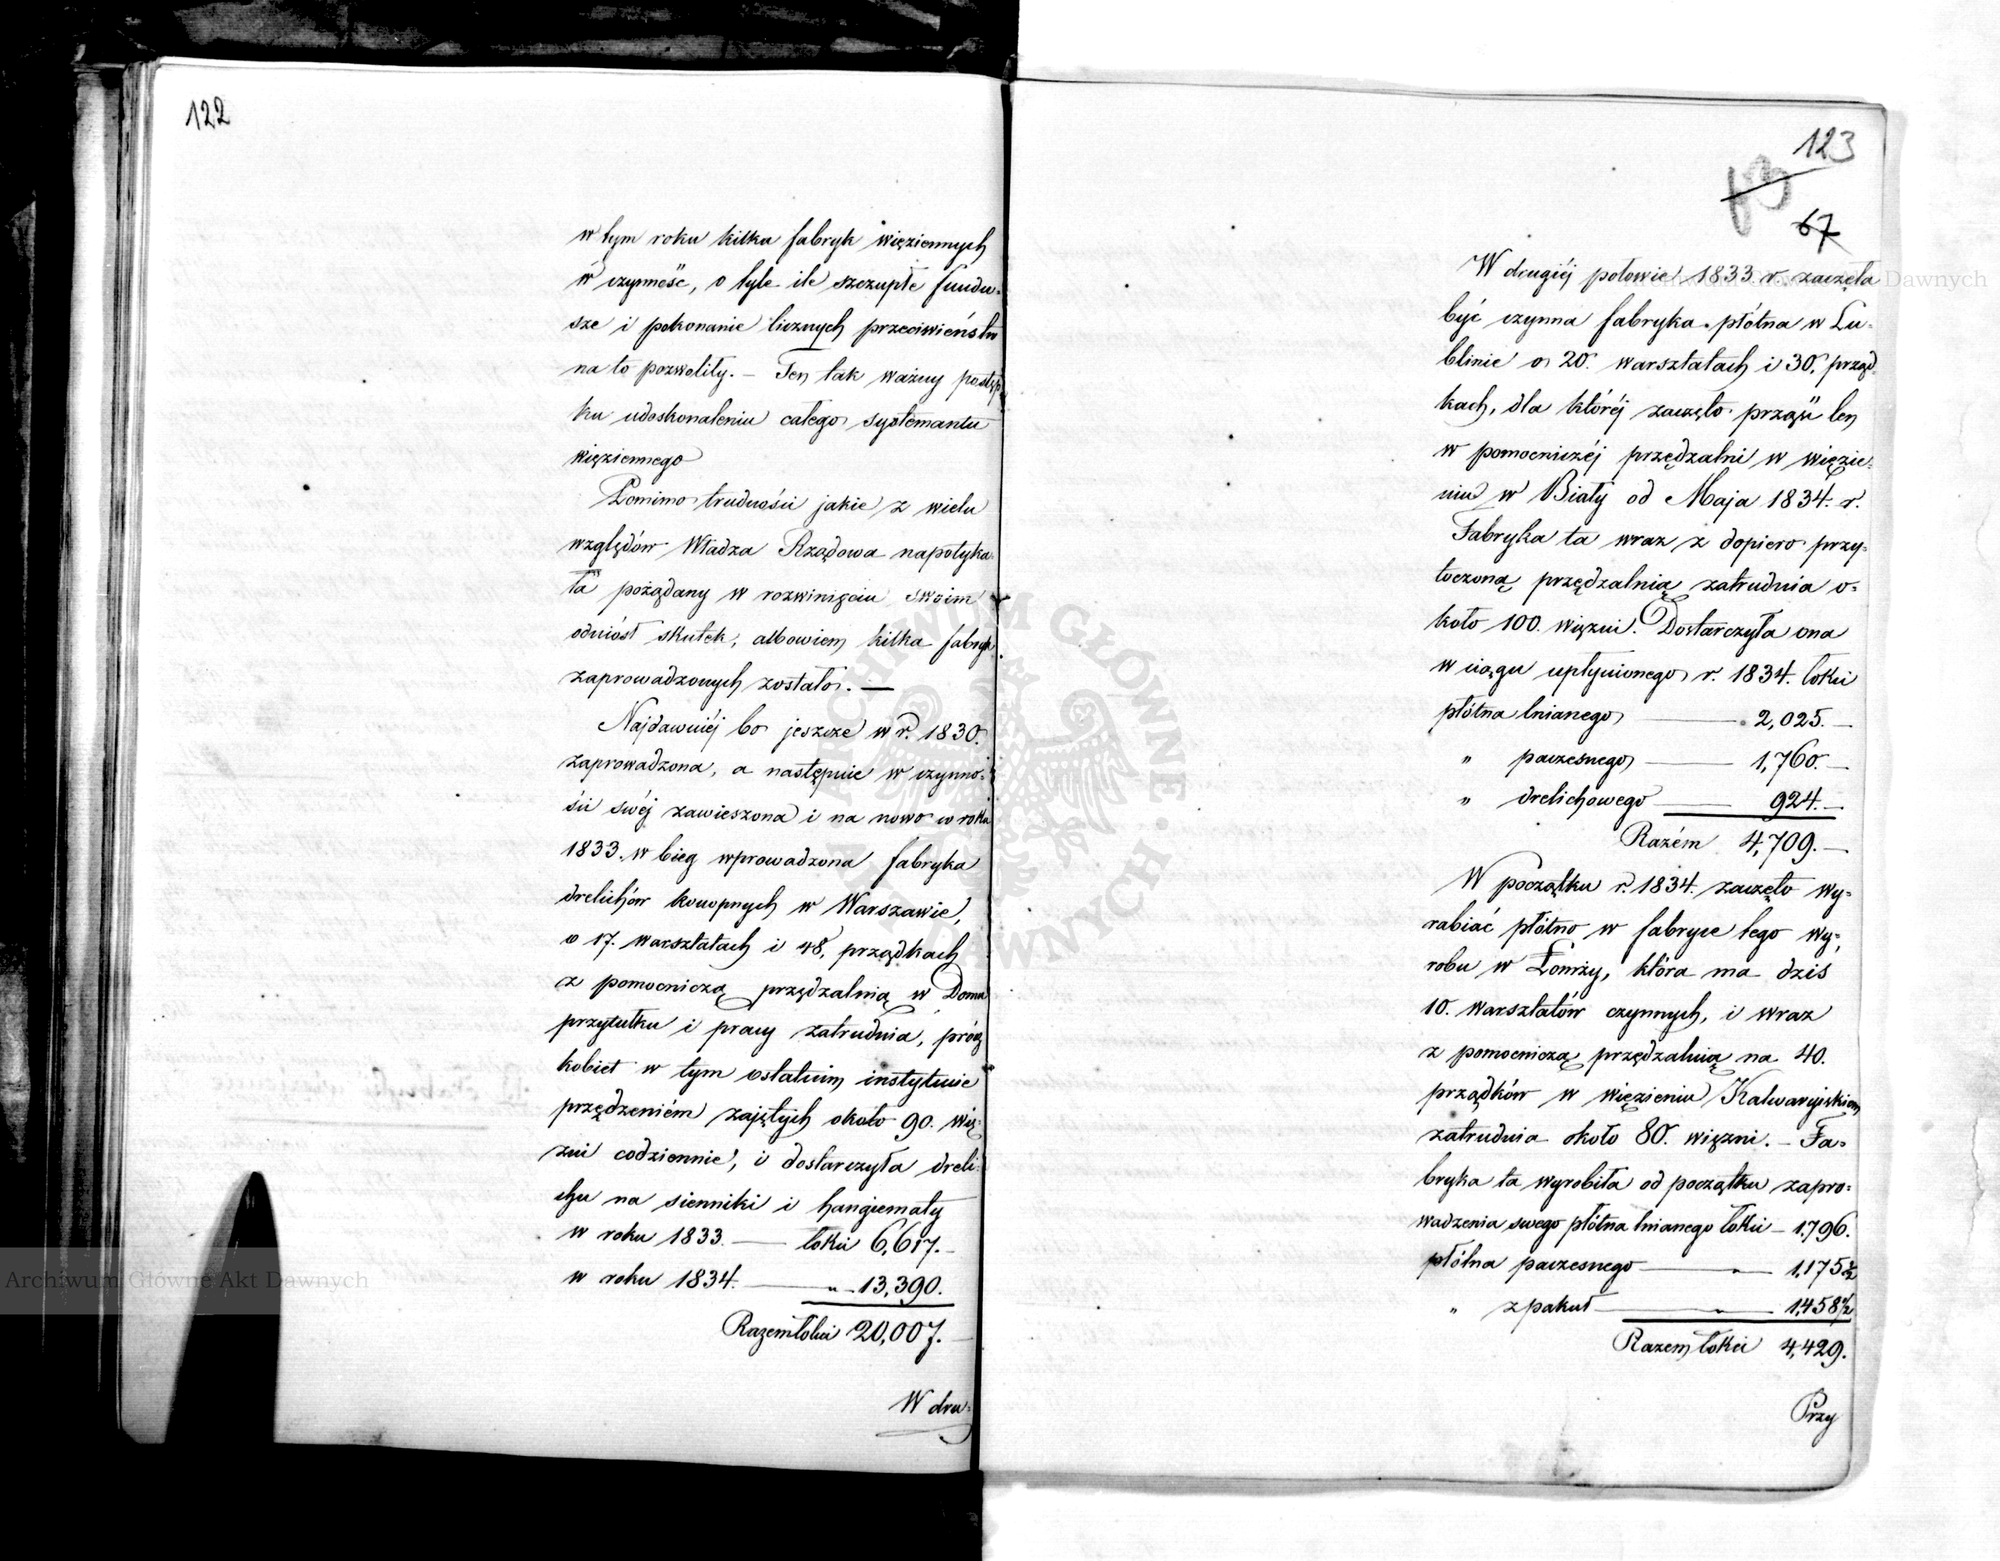 122
w tym roku kilka fabryk więziennych
w czynność, o tyle ile szczupłe fundu-
sze i pokonanie licznych przeciwieństw
na to pozwoliły. — Ten tak ważny postęp
ku udoskonaleniu całego systemantu
więziennego
Pomimo trudności jakie z wielu
względów Władza Rządowa napotyka-
ła pożądany w rozwinięciu swoim
odniósł skutek, albowiem kilka fabryk
zaprowadzonych zostało. —
Najdawniéj bo jeszcze w r. 1830.
zaprowadzona, a następnie w czynno-
ści swéj zawieszona i na nowo w roku
1833. w bieg wprowadzona fabryka
drelichów konopnych w Warszawie,
o 17. warsztatach i 48. prządkach
z pomocniczą przędzalnią w Domu
przytułku i pracy zatrudnia, prócz
kobiet w tym ostatnim instytucie
przędzeniém zajętych około 90. wię-
zni codziennie, i dostarczyła dreli-
chu na sienniki i hangiematy
w roku 1833. — łokci 6,617. —
w roku 1834. — „ — 13,390.
Razem łokci 20,007. —
W dru-
123
67
W drugiéj połowie 1833 r. zaczęła
być czynna fabryka płótna w Lu-
blinie o 20. warsztatach i 30. prząd-
kach, dla któréj zaczęto prząść len
w pomocniczéj przędzalni w więzie-
niu w Biały od Maja 1834. r.
Fabryka ta wraz z dopiero przy-
toczoną przędzalnią zatrudnia o-
koło 100. więzni. Dostarczyła ona
w ciągu upłynionego r. 1834. łokci
płótna lnianego — 2,025. —
„ paczesnego — 1,760. —
„ drelichowego — 924. —
Razém 4,709. —
W początku r. 1834. zaczęto wy-
rabiać płótno w fabryce tego wy-
robu w Łomży, która ma dziś
10. warsztatów czynnych, i wraz
z pomocniczą przędzalnią na 40.
prządków w więzieniu Kalwaryjskiem
zatrudnia około 80. więzni. — Fa-
bryka ta wyrobiła od początku zapro-
wadzenia swego płótna lnianego łokci — 1,796.
płótna paczesnego — „ — 1,175 1/2
„ z pakuł — „ — 1,458 1/2
Razem łokci 4,429.
Przy
Archiwum Główne Akt Dawnych
ARCHIWUM GŁÓWNE AKT DAWNYCH